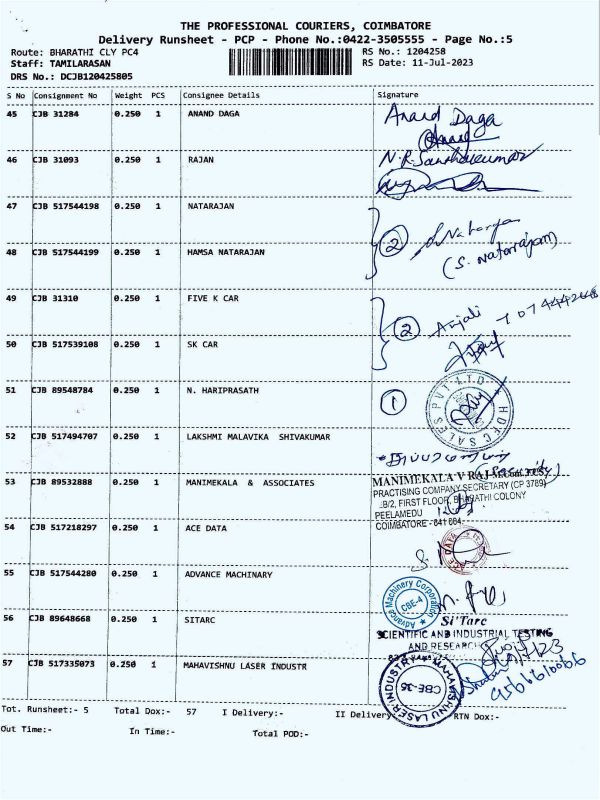 THE PROFESSIONAL COURIERS, COIMBATORE
Delivery Runsheet - PCP - Phone No.:0422-3505555 - Page No.:5
Route: BHARATHI CLY PC4 RS No.: 1204258
Staff: TAMILARASAN RS Date: 11-Jul-2023
DRS No.: DCJB120425805
S No Consignment No Weight PCS Consignee Details Signature
45 CJB 31284 0.250 1 ANAND DAGA Anand Daga
46 CJB 31093 0.250 1 RAJAN N.R. Santhakumar
47 CJB 517544198 0.250 1 NATARAJAN
2 S. Natarajan
48 CJB 517544199 0.250 1 HAMSA NATARAJAN (S. Natarajan)
49 CJB 31310 0.250 1 FIVE K CAR
2 Anjali
50 CJB 517539108 0.250 1 SK CAR
51 CJB 89548784 0.250 1 N. HARIPRASATH 1 HDFC SALES PVT LTD
52 CJB 517494707 0.250 1 LAKSHMI MALAVIKA SHIVAKUMAR
53 CJB 89532888 0.250 1 MANIMEKALA & ASSOCIATES MANIMEKALA V RAJ
PRACTISING COMPANY SECRETARY (CP 3789)
FIRST FLOOR, BHARATHI COLONY
PEELAMEDU
COIMBATORE - 641 004.
54 CJB 517218297 0.250 1 ACE DATA ACE DATA
55 CJB 517544280 0.250 1 ADVANCE MACHINARY Advance Machinery Corporation CBE-4
56 CJB 89648668 0.250 1 SITARC Si'Tarc
SCIENTIFIC AND INDUSTRIAL TESTING
AND RESEARCH
57 CJB 517335073 0.250 1 MAHAVISHNU LASER INDUSTR MAHAVISHNU LASER INDUSTRY CBE-35
9566610066
Tot. Runsheet:- 5 Total Dox:- 57 I Delivery:- II Delivery RTN Dox:-
Out Time:- In Time:- Total POD:-